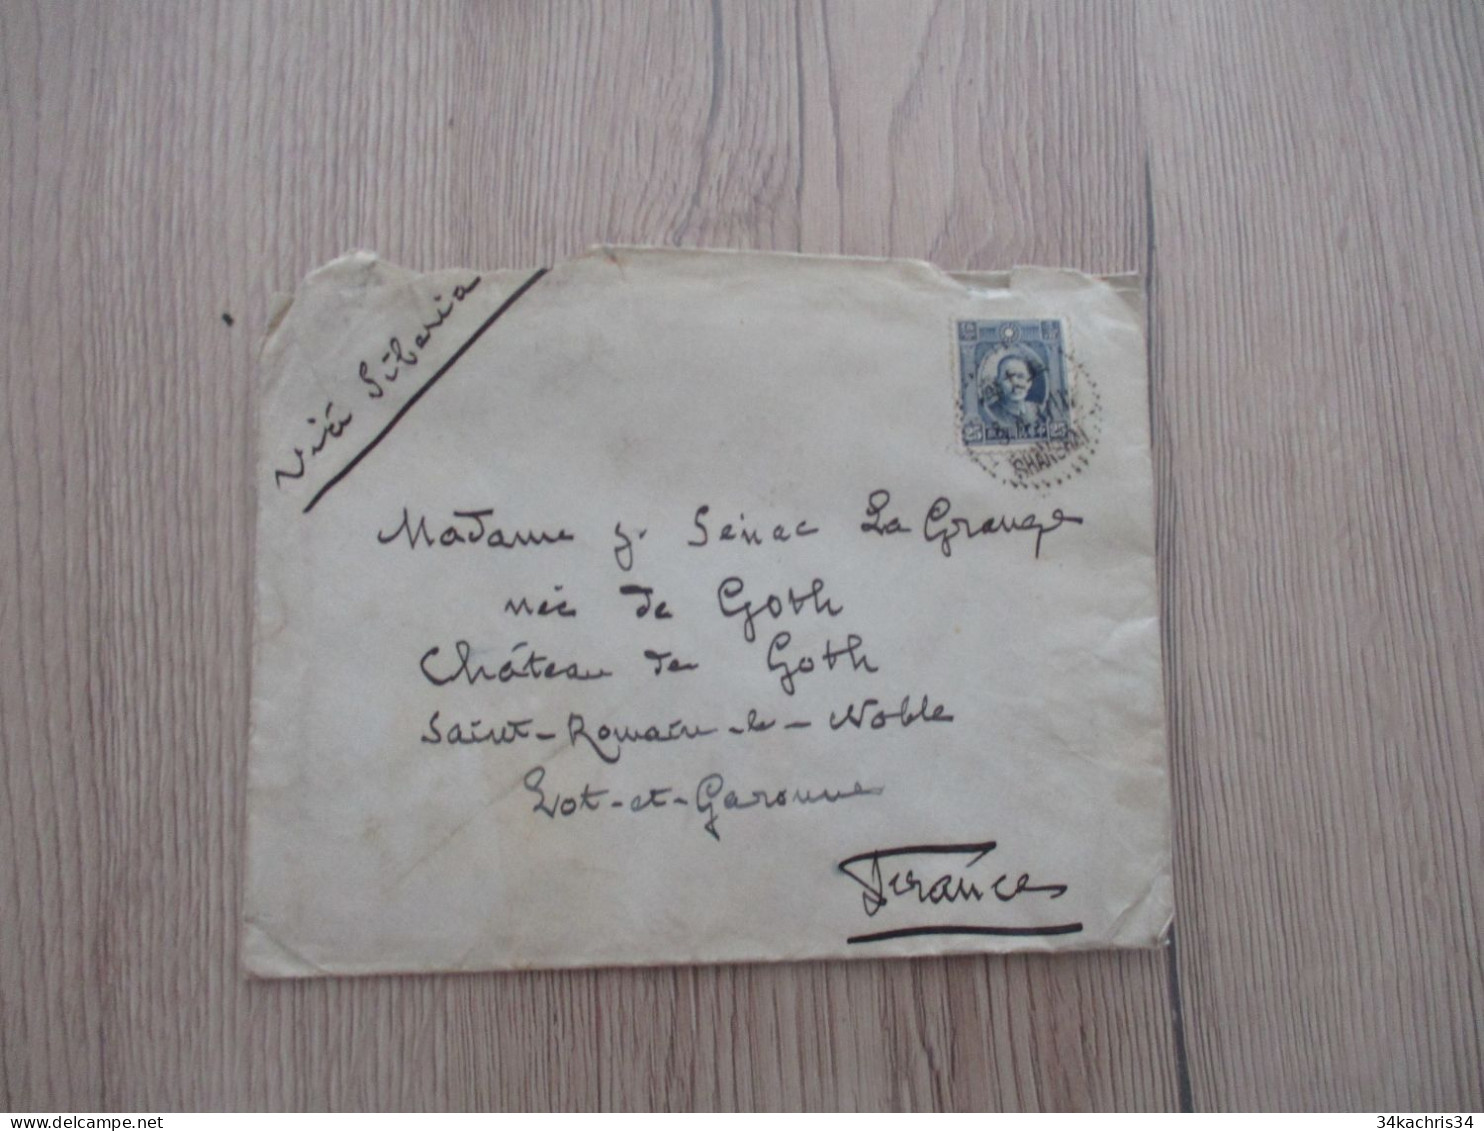 Viâ Siberia
SHANGHAI
Madame J. Sénac La Grange
née de Goth
Château de Goth
Saint-Romain-le-Noble
Lot-et-Garonne
France
delcampe.net
34kachris34